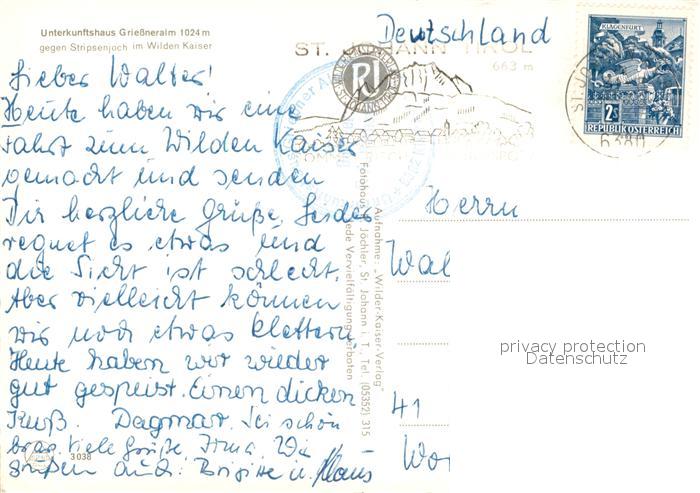 Unterkunftshaus Grießneralm 1024 m
gegen Stripsenjoch im Wilden Kaiser
Lieber Walter!
Heute haben wir eine
Fahrt zum Wilden Kaiser
gemacht und senden
Dir herzliche Grüße. Leider
regnet es etwas und
die Sicht ist schlecht.
Aber vielleicht können
wir noch etwas klettern.
Heute haben wir wieder
gut gespeist. Einen dicken
Kuß. Dagmar. Sei schön
brav. Viele Grüße, Irma. Wir
grüßen auch: Brigitte u. Klaus
3038
Aufnahme: „Wilder-Kaiser-Verlag"
Fotohaus Jöchler, St. Johann i. T., Tel. (05352) 315
Jede Vervielfältigung verboten
Deutschland
ST. JOHANN TIROL
663 m
KLAGENFURT
2S
REPUBLIK ÖSTERREICH
6380
Herrn
Wal
41
Wor
privacy protection
Datenschutz